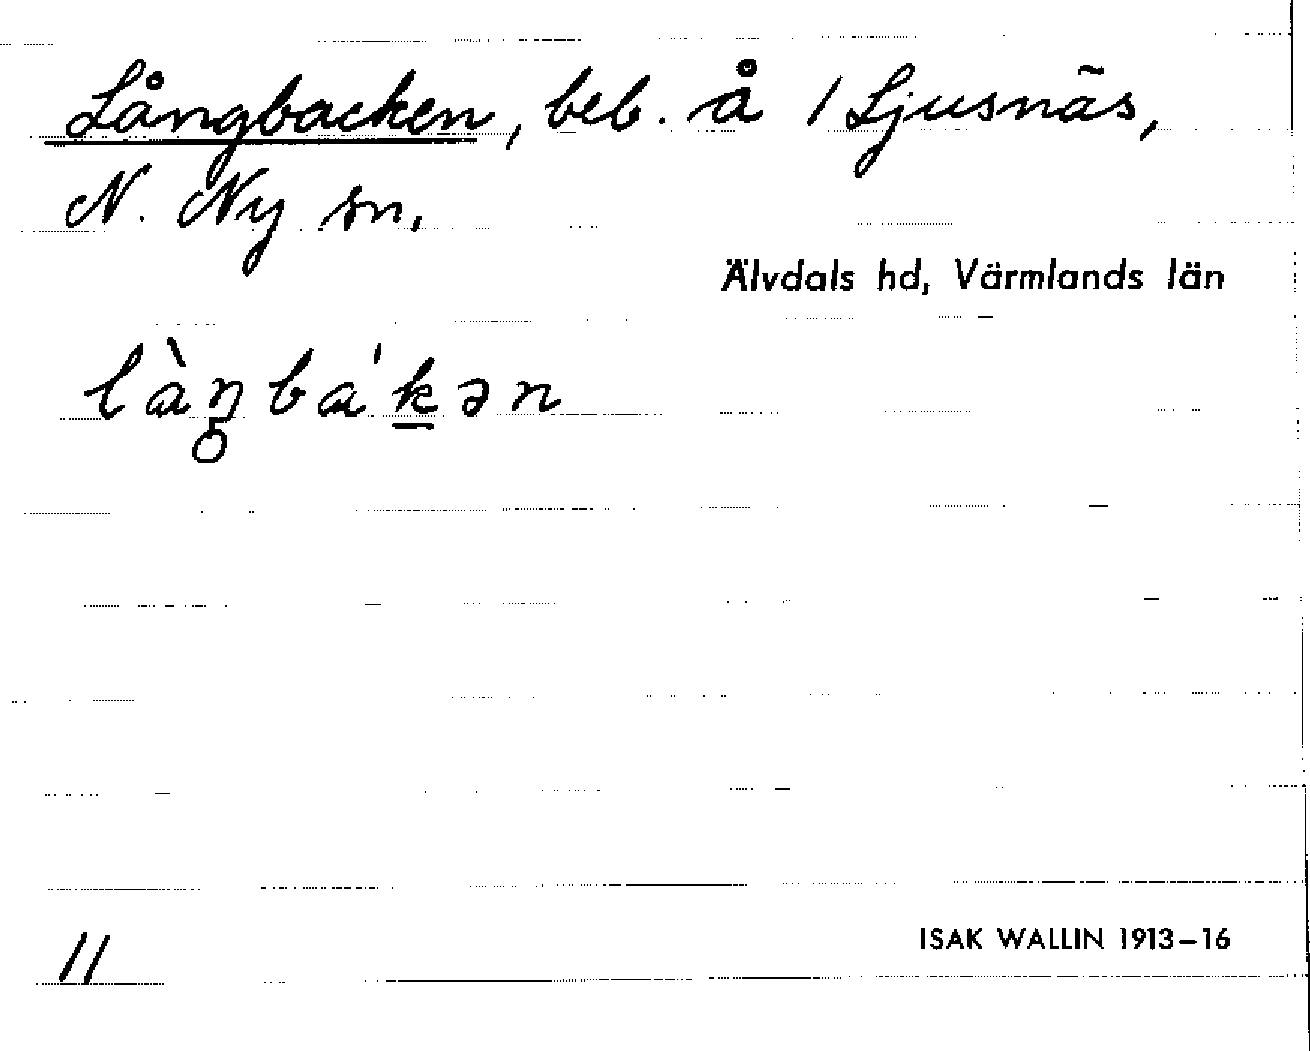 Långbacken, beb. å 1 Ljusnäs,
N. Ny sn.
Älvdals hd, Värmlands län
làŋ̥baḱ̠ən
11
ISAK WALLIN 1913–16